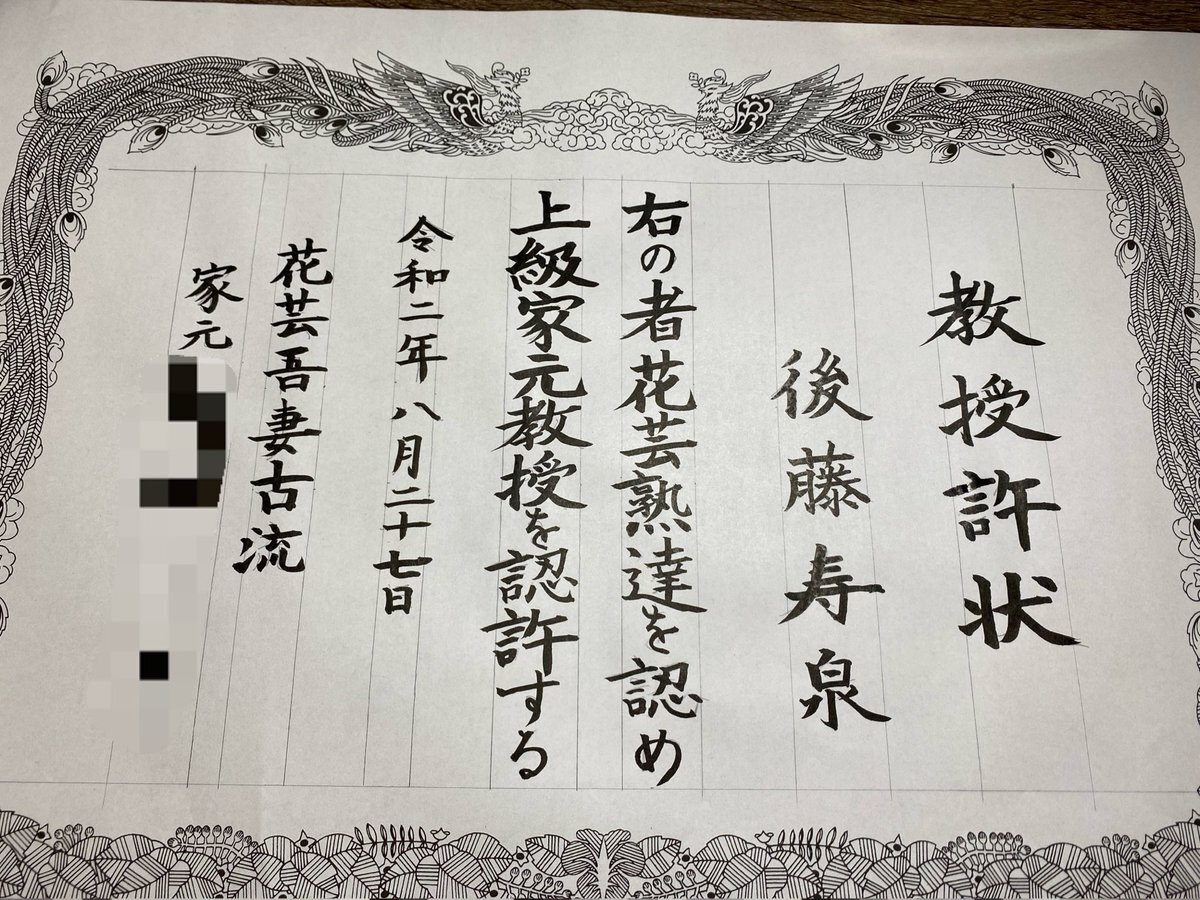 教授許状
後藤寿泉
右の者花芸熟達を認め
上級家元教授を認許する
令和二年八月二十七日
花芸吾妻古流
家元